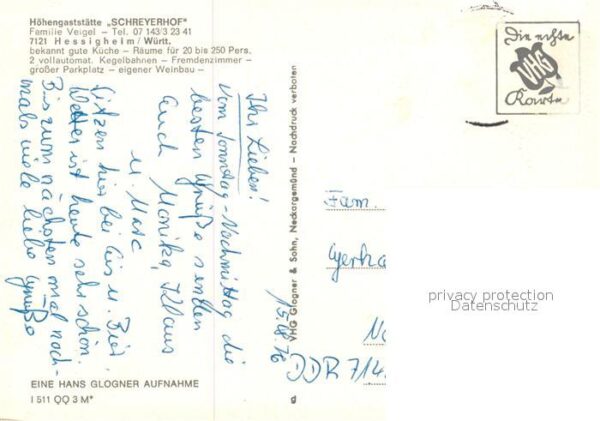 Höhengaststätte „SCHREYERHOF"
Familie Veigel – Tel. 07 143/3 23 41
7121 Hessigheim / Württ.
bekannt gute Küche – Räume für 20 bis 250 Pers.
2 vollautomat. Kegelbahnen – Fremdenzimmer –
großer Parkplatz – eigener Weinbau –
Ihr Lieben!
Vom Sonntag-Nachmittag die
besten Grüße senden
auch Monika, Klaus
u. Marc
Sitzen hier bei Eis u. Bier.
Wetter ist heute sehr schön.
Bis zum nächsten mal noch-
mals viele liebe Grüße
15.08.76
VHG Glogner & Sohn, Neckargemünd – Nachdruck verboten
Die echte
VHG
Karte
Fam.
Gerha
DDR 714
privacy protection
Datenschutz
EINE HANS GLOGNER AUFNAHME
I 511 QQ 3 M*
g